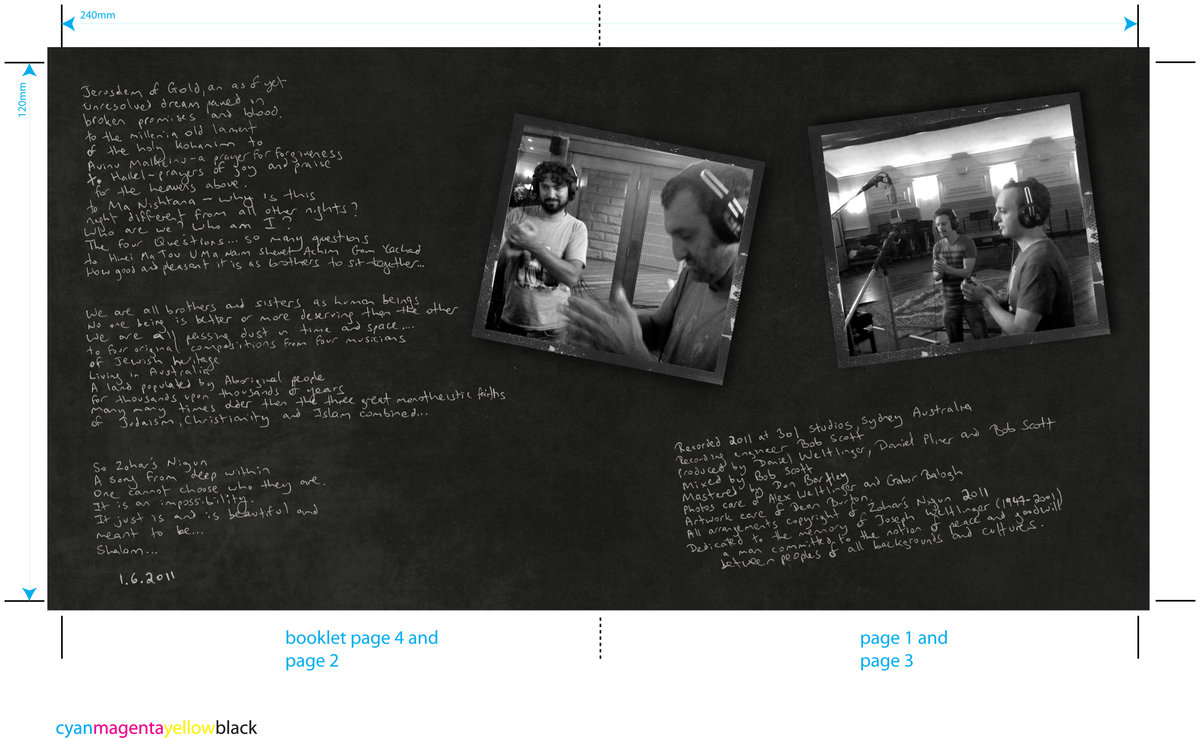 240mm
120mm
Jerusalem of Gold, an as of yet
unresolved dream paved in
broken promises and blood.
to the millenia old lament
of the holy kohanim to
Avinu Malkeinu - a prayer for forgiveness
to Hallel - prayers of joy and praise
for the heavens above.
to Ma Nishtana - why is this
night different from all other nights?
Who are we? Who am I?
The Four Questions... so many questions
to Hinei Ma Tov U Ma Naim Shevet Achim Gam Yachad
How good and pleasant it is as brothers to sit together...
We are all brothers and sisters as human beings
No one being is better or more deserving than the other
We are all passing dust in time and space...
to four original compositions from four musicians
of Jewish heritage
Living in Australia
A land populated by Aboriginal people
for thousands upon thousands of years
Many many times older then the three great monotheistic faiths
of Judaism, Christianity and Islam combined...
So Zohar's Nigun
A song from deep within
One cannot choose who they are.
It is an impossibility.
It just is and is beautiful and
meant to be...
Shalom...
1.6.2011
Recorded 2011 at 301 Studios, Sydney Australia
Recording engineer Bob Scott
Produced by Daniel Weltlinger, Daniel Pliner and Bob Scott
Mixed by Bob Scott
Mastered by Don Bartley
Photos care of Alex Weltlinger and Gabor Balogh
Artwork care of Dean Burton.
All arrangements copyright of Zohar's Nigun 2011
Dedicated to the memory of Joseph Weltlinger (1947-2001)
a man committed to the notion of peace and goodwill
between peoples of all backgrounds and cultures.
booklet page 4 and
page 2
page 1 and
page 3
cyanmagentayellowblack